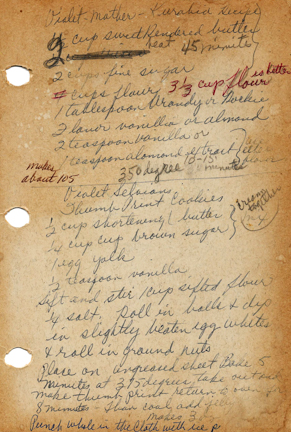 Violet - Mother - Kurabia Recipe
cup sweet Rendered butter
2 beat 45 minutes
2 cups fine sugar
# cups flour 3 1/3 cup flour is better
1 tablespoon Brandy or Bookie
flavor vanilla or almond
2 teaspoon vanilla or
1 teaspoon alomond extract
350 degree 10-15 minutes
makes about 105
Violet Selosians
Thumb Print Cookies
1/2 cup shortening butter
1/4 cup cup brown sugar
1 egg yolk
1/2 teaspoon vanilla
Sift and stir 1 cup sifted flour
1/4 salt. Roll in balls & dip
in slightly beaten egg whites
& roll in ground nuts
Place on ungreased sheet Bake 5
minutes at 375 degrees, take out and
make thumb print return to oven
8 minutes - than cool, add jell
makes 3
Punch whole in the cloth with ice p